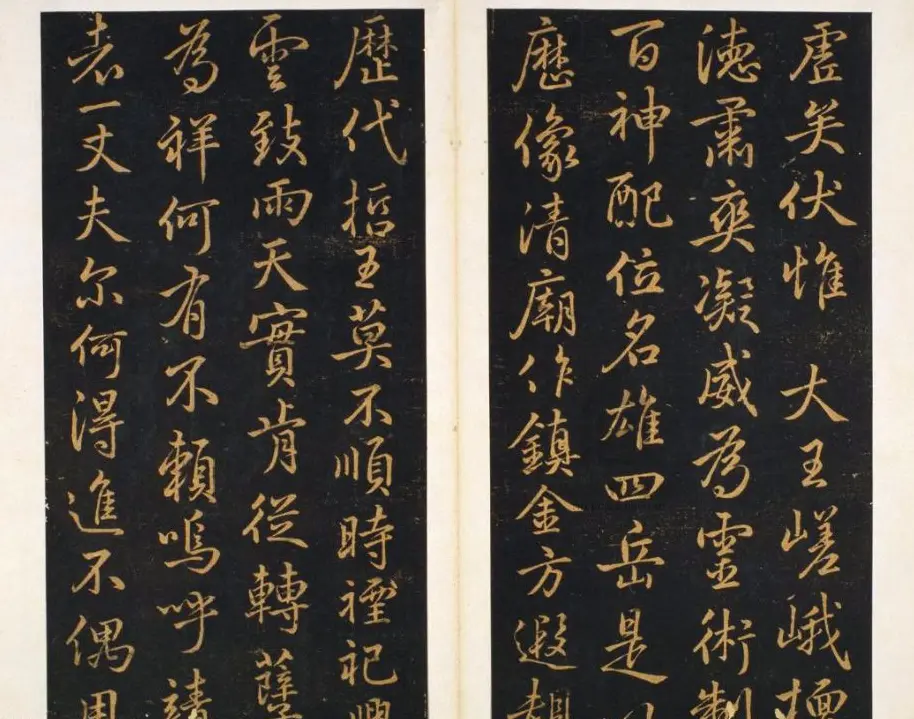 虛矣伏惟 大王嵯峨
德肅爽凝威為靈術制
百神配位名雄四岳是
歷像清廟作鎮金方遐觀
歷代哲王莫不順時禋祀興
雲致雨天實肯從轉孽
為祥何有不賴嗚呼靖
者一丈夫尔何得進不偶用